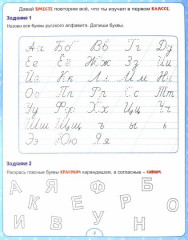 Давай ВМЕСТЕ повторим всё, что ты изучал в первом КЛАССЕ.
Задание 1
Назови все буквы русского алфавита. Допиши буквы.
Аа Бб Вв Гг Дд
Ее Ёё Жж Зз Ии
Йй Кк Лл Мм Нн
Оо Пп Рр Сс Тт
Уу Фф Хх Цц Чч
Шш Щщ ъ ы ь
Ээ Юю Яя
Задание 2
Раскрась гласные буквы КРАСНЫМ карандашом, а согласные – СИНИМ.
А Я Ф Б
И Е К Р О
В У Н